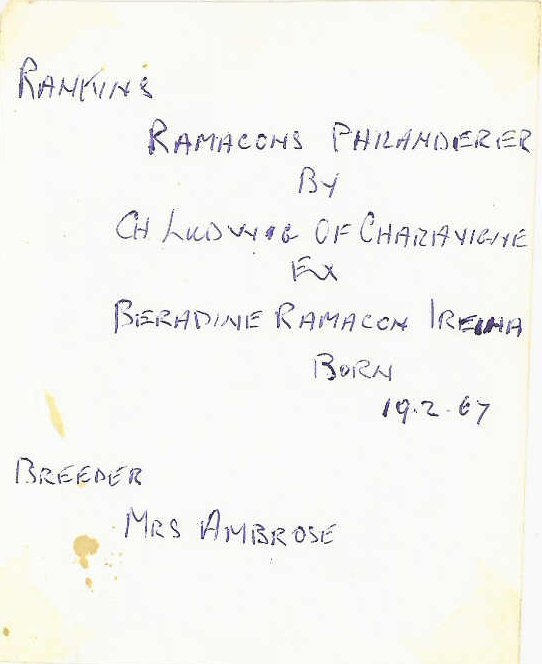 RANKINS
RAMACONS PHILANDERER
BY
CH LUDWIG OF CHARAVIGNE
EX
BERADINE RAMACON IREINA
BORN
19.2.67
BREEDER
MRS AMBROSE